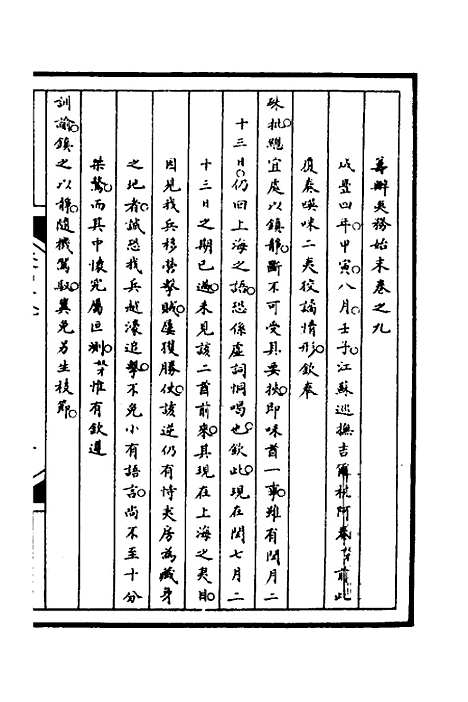 籌辦夷務始末卷之九
咸豐四年甲寅八月壬子江蘇巡撫吉爾杭阿奏前此
復奏㗸咪二夷狡譎情形欽奉
硃批總宜處以鎮靜斷不可受其要挾即咪酋一事雖有閏月二
十三日仍回上海之語恐係虛詞恫喝也欽此現在閏七月二
十三日之期已過未見該二酋前來其現在上海之夷目
因見我兵移營擊賊屢獲勝仗該逆仍有恃夷房為藏身
之地者誠恐我兵越濠追擊不免小有語言尚不至十分
桀驁而其中懷究屬叵測惟有欽遵
訓諭鎮之以靜隨機駕馭冀免另生枝節